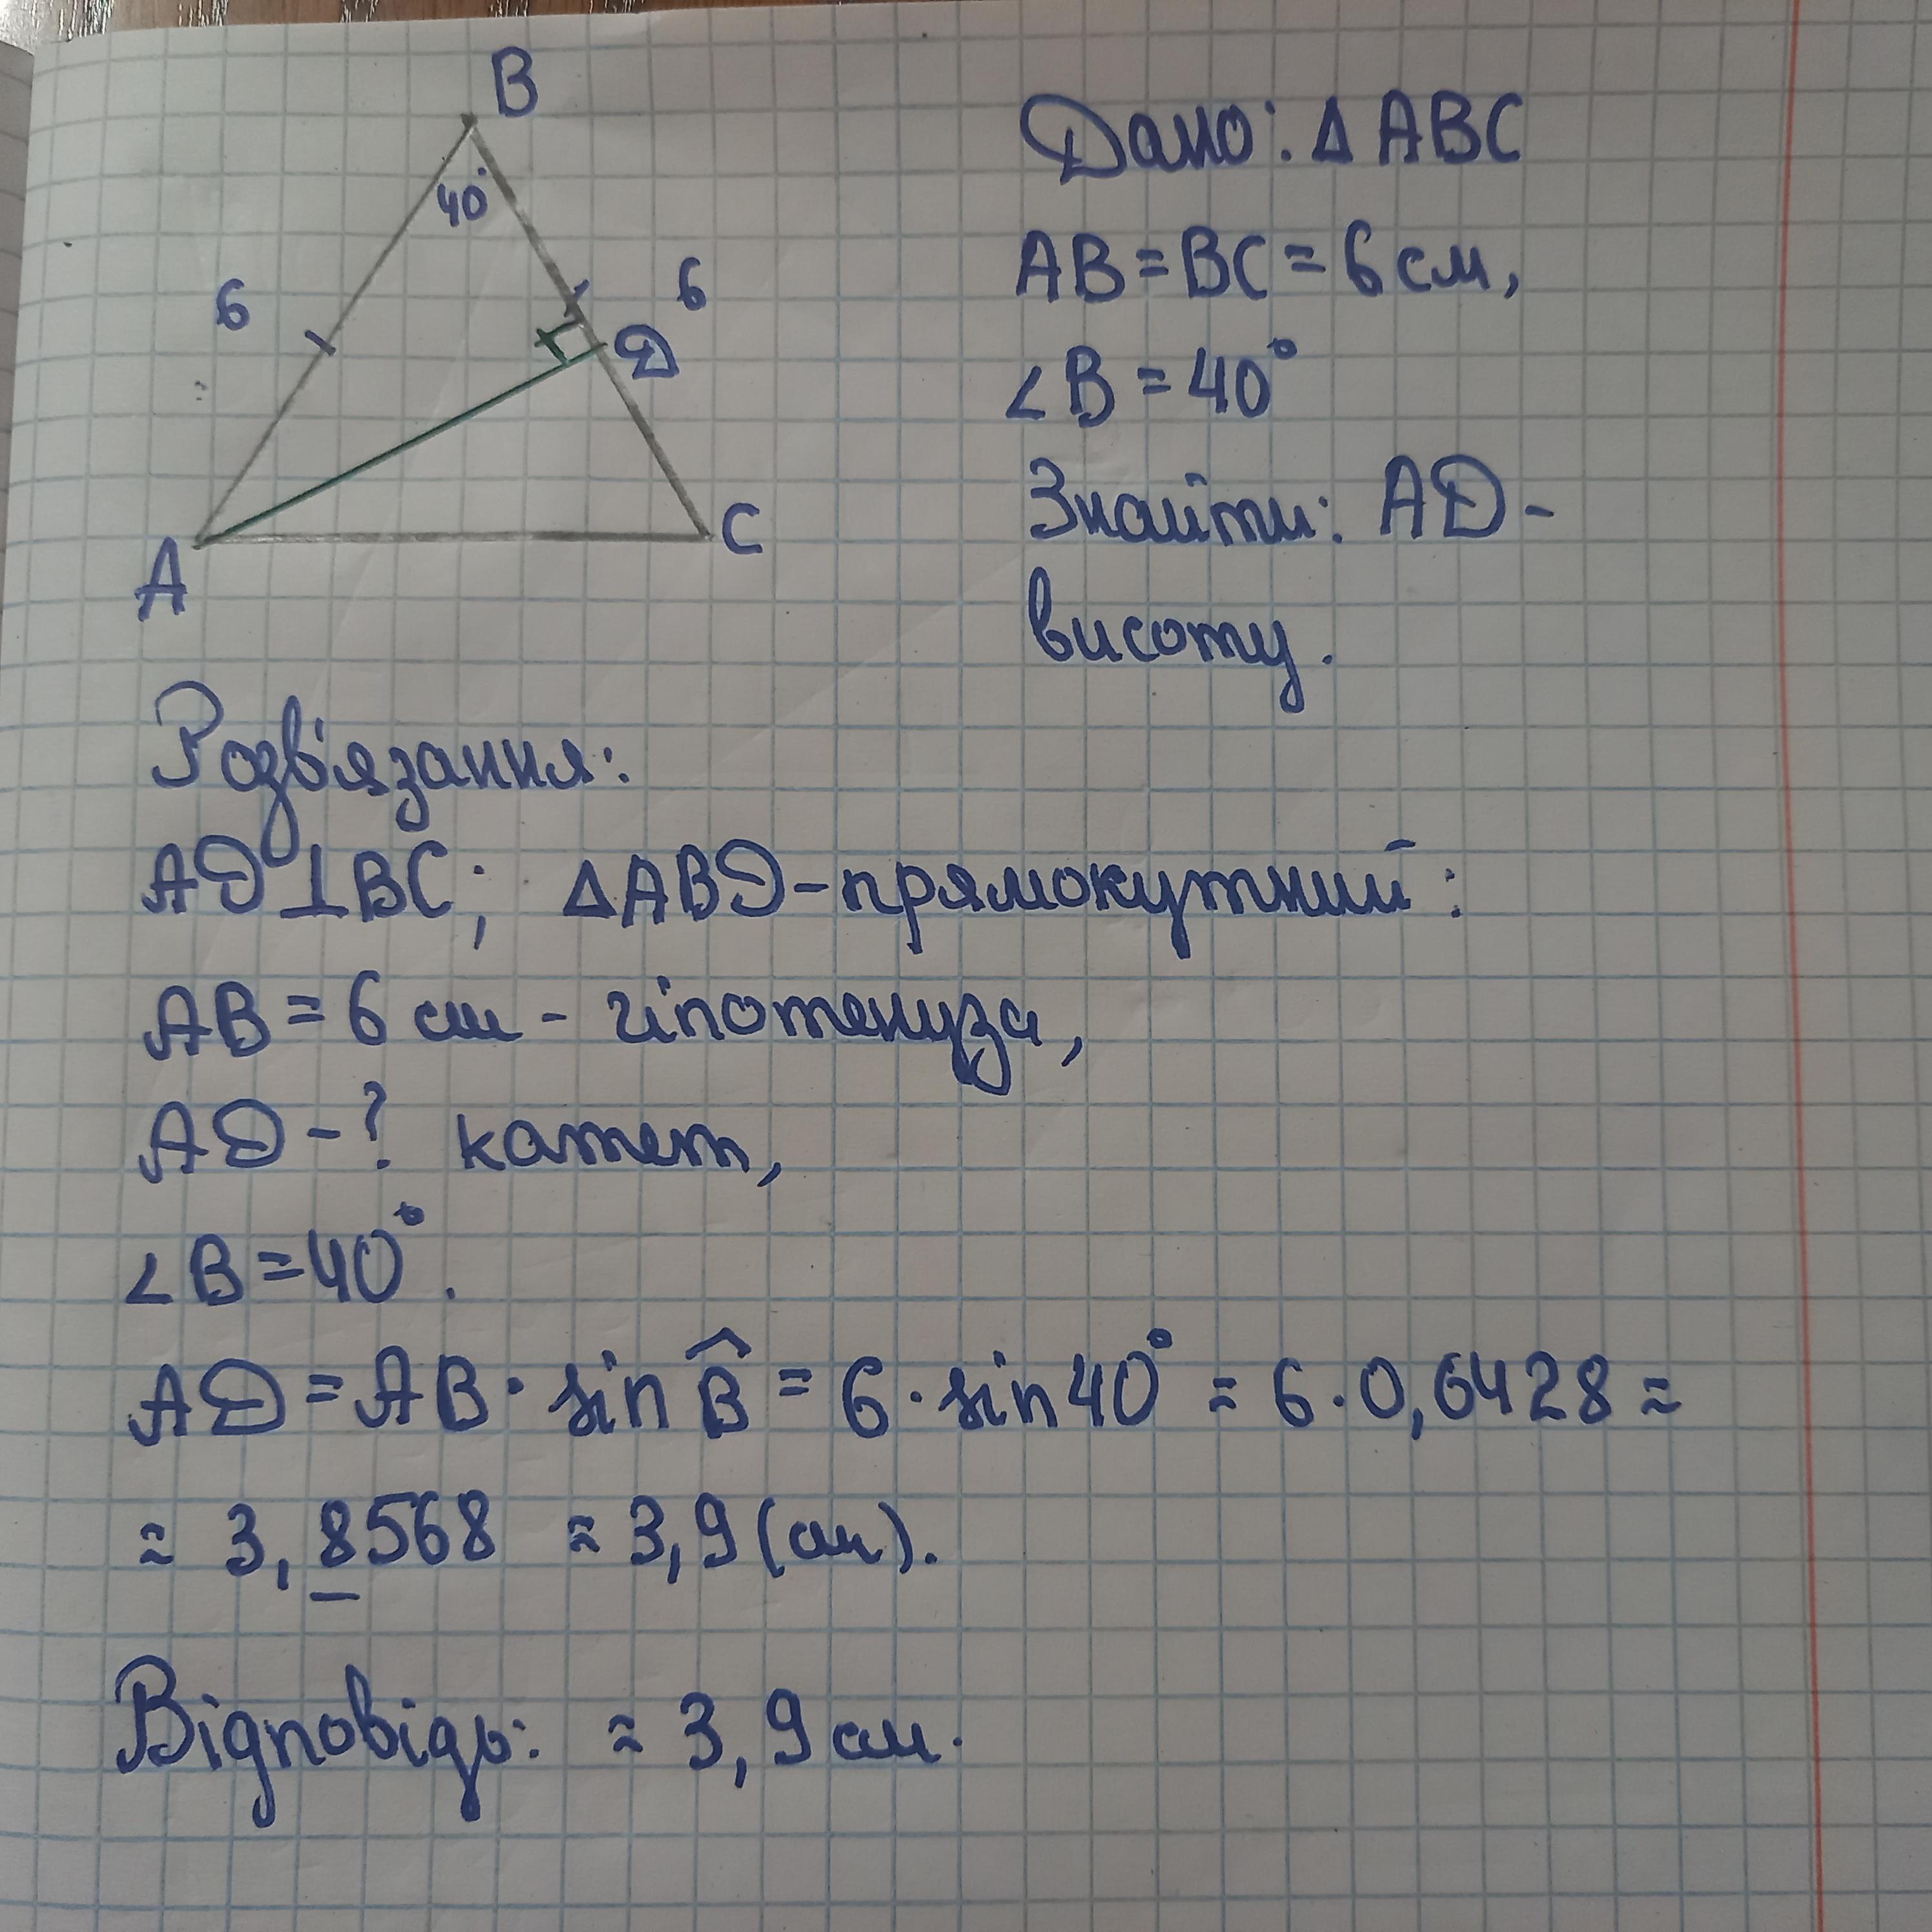 B
40°
6
6
D
A
C
Дано: Δ ABC
AB = BC = 6 см,
∠B = 40°
Знайти: AD -
висоту.
Розв'язання:
AD ⊥ BC; ΔABD - прямокутний:
AB = 6 см - гіпотенуза,
AD - ? катет,
∠B = 40°.
AD = AB · sin B̂ = 6 · sin 40° ≈ 6 · 0,6428 ≈
≈ 3,8568 ≈ 3,9 (см).
Відповідь: ≈ 3,9 см.